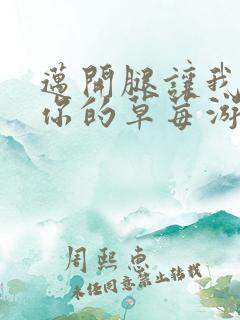 邁開腿讓我
你的草莓游
周熙惠
未经同意禁止转载